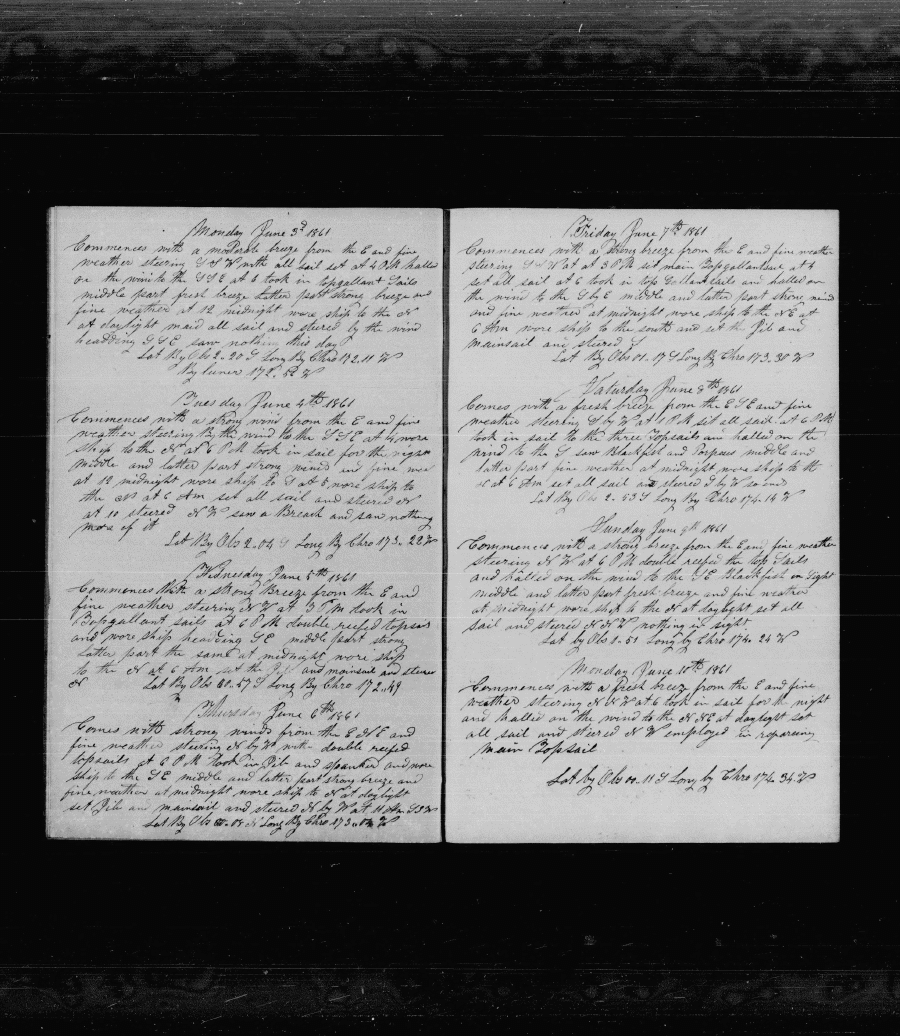 Monday June 3d 1861
Commences with a moderate breeze from the E and fine
weather steering S S W with all sail set at 4 P M halled
on the wind to the S S E at 6 took in topgallant Sails
middle part fresh breeze Latter part strong breeze and
fine weather at 12 midnight wore ship to the N
at daylight maid all sail and steered by the wind
heading S S E saw nothing this day
Lat By Obs 2.20 S Long By Chro 172.11 W
By luner 172.52 W
Tuesday June 4th 1861
Commences with a strong wind from the E and fine
weather steering By the wind to the S S E at 4 wore
ship to the N at 6 P M took in sail for the night
middle and latter part strong wind and fine wea
at 12 midnight wore ship to S at 5 wore ship to
the N at 6 Am set all sail and steered N
at 10 steered N W saw a Breach and saw nothing
more of it
Lat By Obs 2.04 S Long By Chro 173.22 W
Wednesday June 5th 1861
Commences With a strong Breeze from the E and
fine weather steering N W at 3 P M took in
Topgallant sails at 6 P M double reefed topsails
and wore ship heading S E middle part strong
latter part the same at midnight wore ship
to the N at 6 Am set the Jib and mainsail and steered
N Lat By Obs 00.57 S Long By Chro 172.49
Thursday June 6th 1861
Comes with strong winds from the E N E and
fine weather steering N by W with double reefed
topsails at 6 P M took in Jib and spanker and wore
ship to the S E middle and latter part strong breeze and
fine weather at midnight wore ship to N at daylight
set Jib and mainsail and steered N by W at 11 Am
Lat By Obs 00.08 N Long By Chro 173.04 W
Friday June 7th 1861
Commences with a strong breeze from the E and fine weather
steering S W at 3 P M set main Topgallantsail at 4
set all sail at 6 took in top Gallant sails and halled on
the wind to the S by E middle and latter part strong wind
and fine weather at midnight wore ship to the N E at
6 Am wore ship to the south and set the Jib and
mainsail and steered S
Lat By Obs 01.17 S Long By Chro 173.30 W
Saturday June 8th 1861
Comes with a fresh breeze from the E S E and fine
weather steering S by W at 1 P M set all sail at 6 P M
took in sail to the three Topsails and halled on the
wind to the S saw Blackfish and Porpuss middle and
latter part fine weather at midnight wore ship to the
N at 6 Am set all sail and steered S by W
Lat By Obs 2.53 S Long By Chro 174.14 W
Sunday June 9th 1861
Commences with a strong breeze from the E and fine weather
steering N W at 6 P M double reefed the top Sails
and halled on the wind to the S E Blackfish in Sight
middle and latter part fresh breeze and fine weather
at midnight wore ship to the N at daylight set all
sail and steered N N W nothing in sight
Lat by Obs 1.51 Long by Chro 174.24 W
Monday June 10th 1861
Commences with a fresh breeze from the E and fine
weather steering N N W at 6 took in sail for the night
and halled on the wind to the N N E at daylight set
all sail and steered N W employed in reparing
main Topsail
Lat by Obs 00.11 S Long by Chro 174.34 W